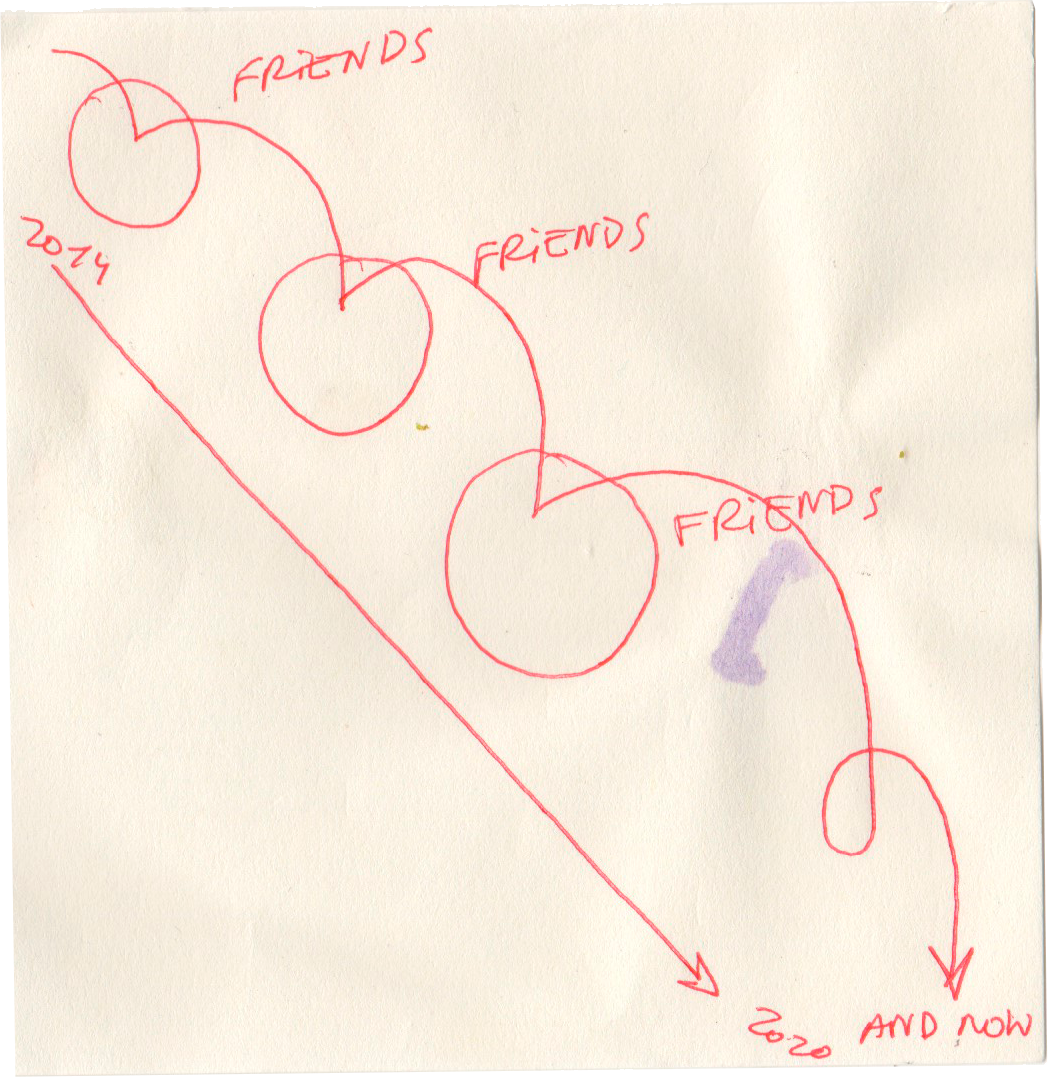 FRiENDS
2014
FRiENDS
FRiENDS
2020 AND NOW